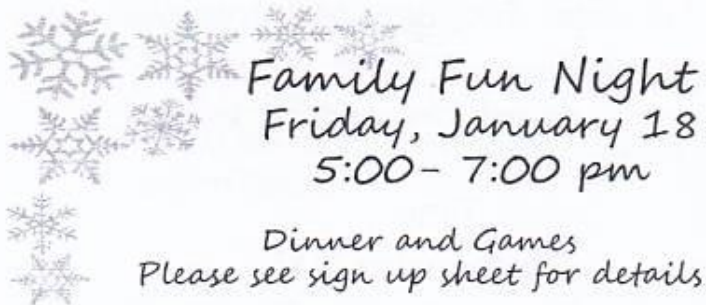 Family Fun Night
Friday, January 18
5:00 - 7:00 pm
Dinner and Games
Please see sign up sheet for details